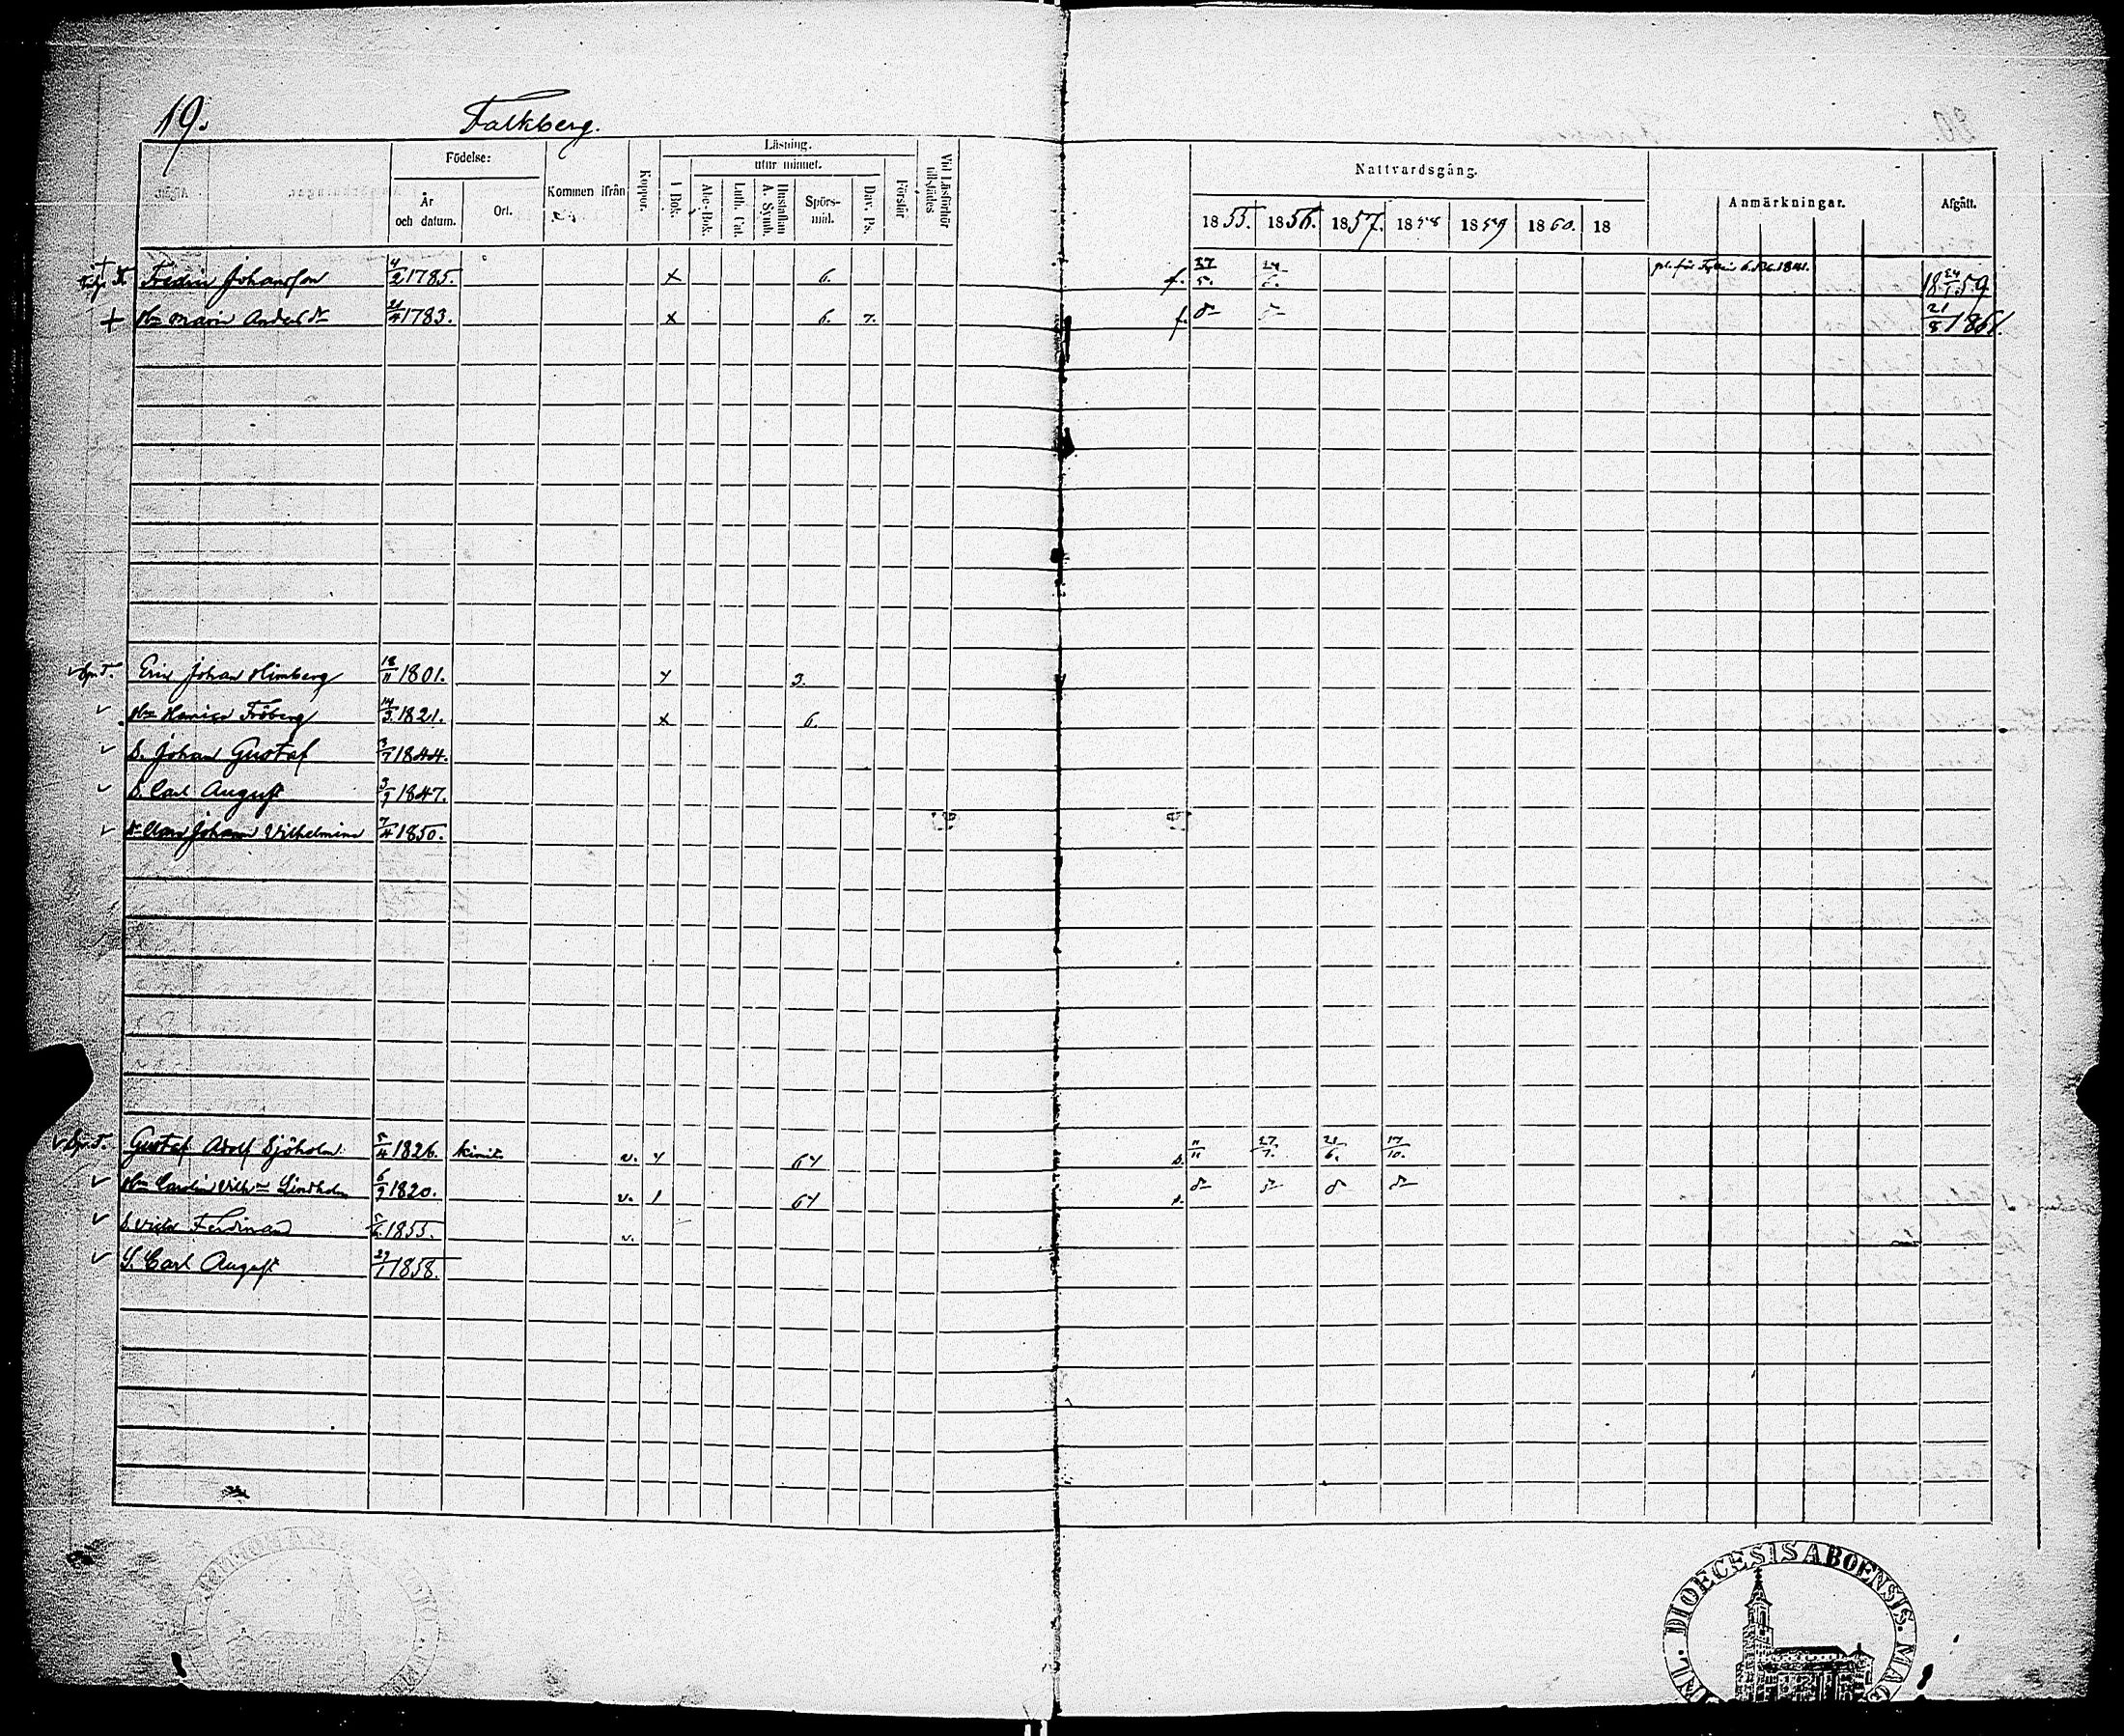 19.
Falkberg.
Födelse:
Läsning.
utur minnet.
År och datum.
Ort.
Kommen ifrån
Koppor.
I Bok.
Abc-Bok.
Luth. Cat.
Hustaflan A. Symb.
Spörs-mål.
Dav. Ps.
Förstår
Vid Läsförhör tillstädes
Nattvardsgång.
Anmärkningar.
Afgått.
1855. 1856. 1857. 1858 1859 1860. 18
Johansson 4/2 1785. x 6. f. 27/5. 24/ 1841. 18 24/1 59
+ Hu Maria Anders dr 21/4 1783. x 6. 7. f. 21/8 1861.
Eric Johan Himberg 18/11 1801. 3.
Hu Fröberg 14/3 1821. x 6.
S. Johan Gustaf 1844.
S. Carl August 3/9 1847.
Johanna Vilhelmina 7/4 1850.
Gustaf Adolf Sjöholm 5/4 1826. Kimito v. 11/11 27/7. 21/6. 17/10.
Hu Carolina Vilh:a Lindholm 6/9 1820. v. 1
S. Victor Ferdinand 5/6 1855. v.
S. Carl August 29/1 1858.
DIOECESIS ABOENSIS. MAG